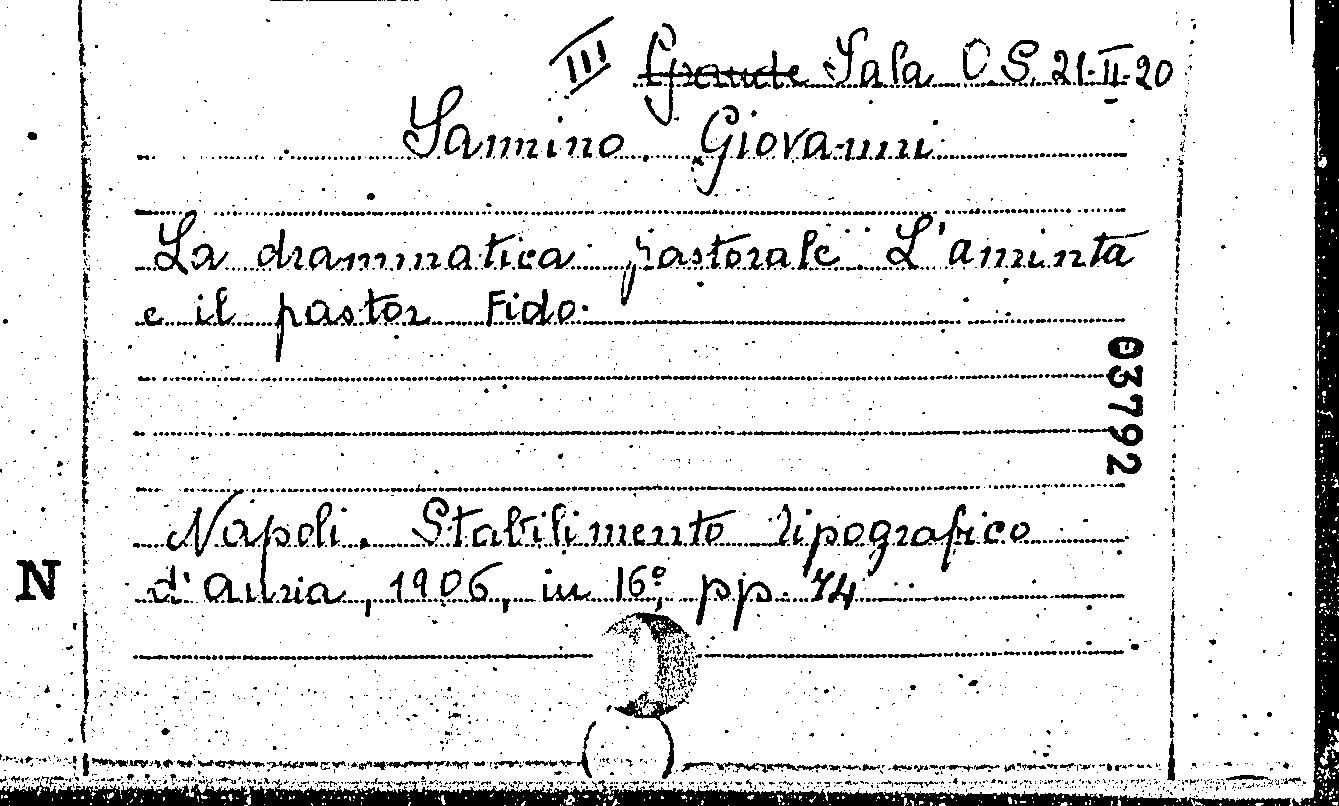 III Grande Sala O.S. 21-II-20
Sannino Giovanni
La drammatica pastorale: L'aminta
e il pastor Fido.
03792
Napoli. Stabilimento tipografico
N
d'Auria, 1906, in 16º, pp. 74